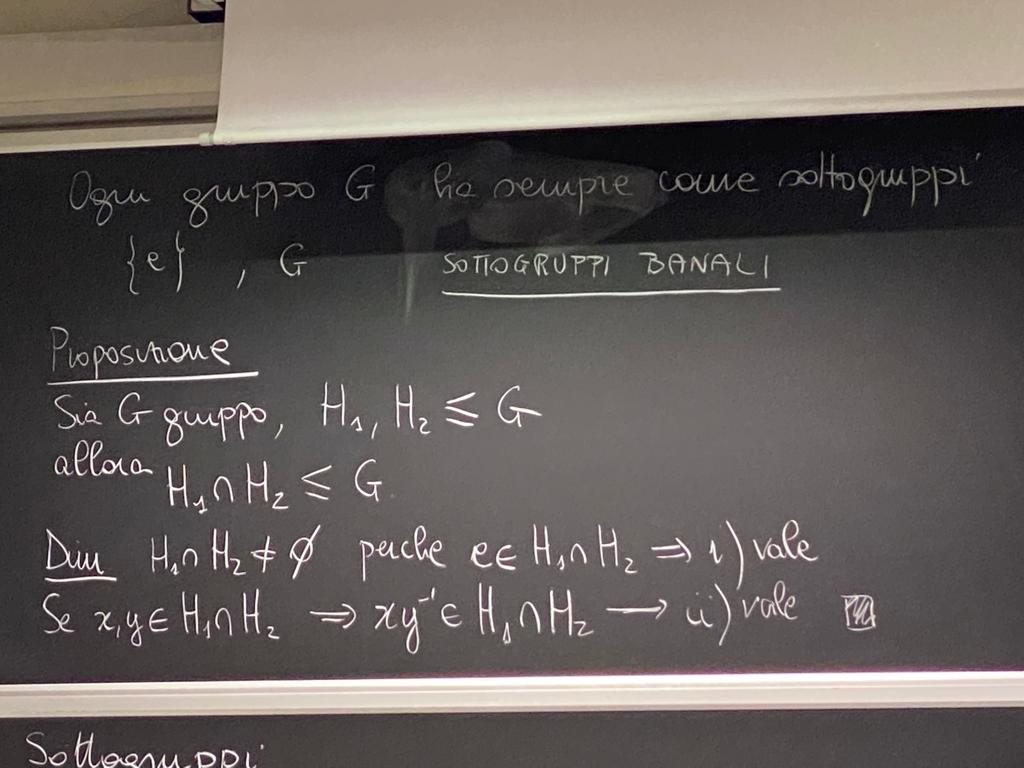 Ogni gruppo G ha sempre come sottogruppi
{e} , G SOTTOGRUPPI BANALI
Proposizione
Sia G gruppo, H₁, H₂ ≤ G
allora H₁ ∩ H₂ ≤ G.
Dim H₁ ∩ H₂ ≠ ∅ perche e ∈ H₁ ∩ H₂ ⇒ i) vale
Se x, y ∈ H₁ ∩ H₂ ⇒ xy⁻¹ ∈ H₁ ∩ H₂ → ii) vale
Sottogruppi